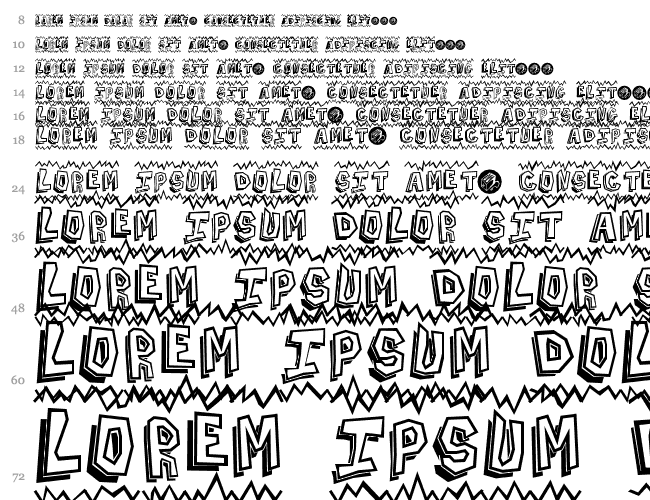 8 LOREM IPSUM DOLOR SIT AMET CONSECTETUER ADIPISCING ELIT
10 LOREM IPSUM DOLOR SIT AMET CONSECTETUER ADIPISCING ELIT
12 LOREM IPSUM DOLOR SIT AMET CONSECTETUER ADIPISCING ELIT
14 LOREM IPSUM DOLOR SIT AMET CONSECTETUER ADIPISCING ELIT
16 LOREM IPSUM DOLOR SIT AMET CONSECTETUER ADIPISCING EL
18 LOREM IPSUM DOLOR SIT AMET CONSECTETUER ADIPIS
24 LOREM IPSUM DOLOR SIT AMET CONSECTE
36 LOREM IPSUM DOLOR SIT AM
48 LOREM IPSUM DOLOR S
60 LOREM IPSUM DOL
72 LOREM IPSUM D